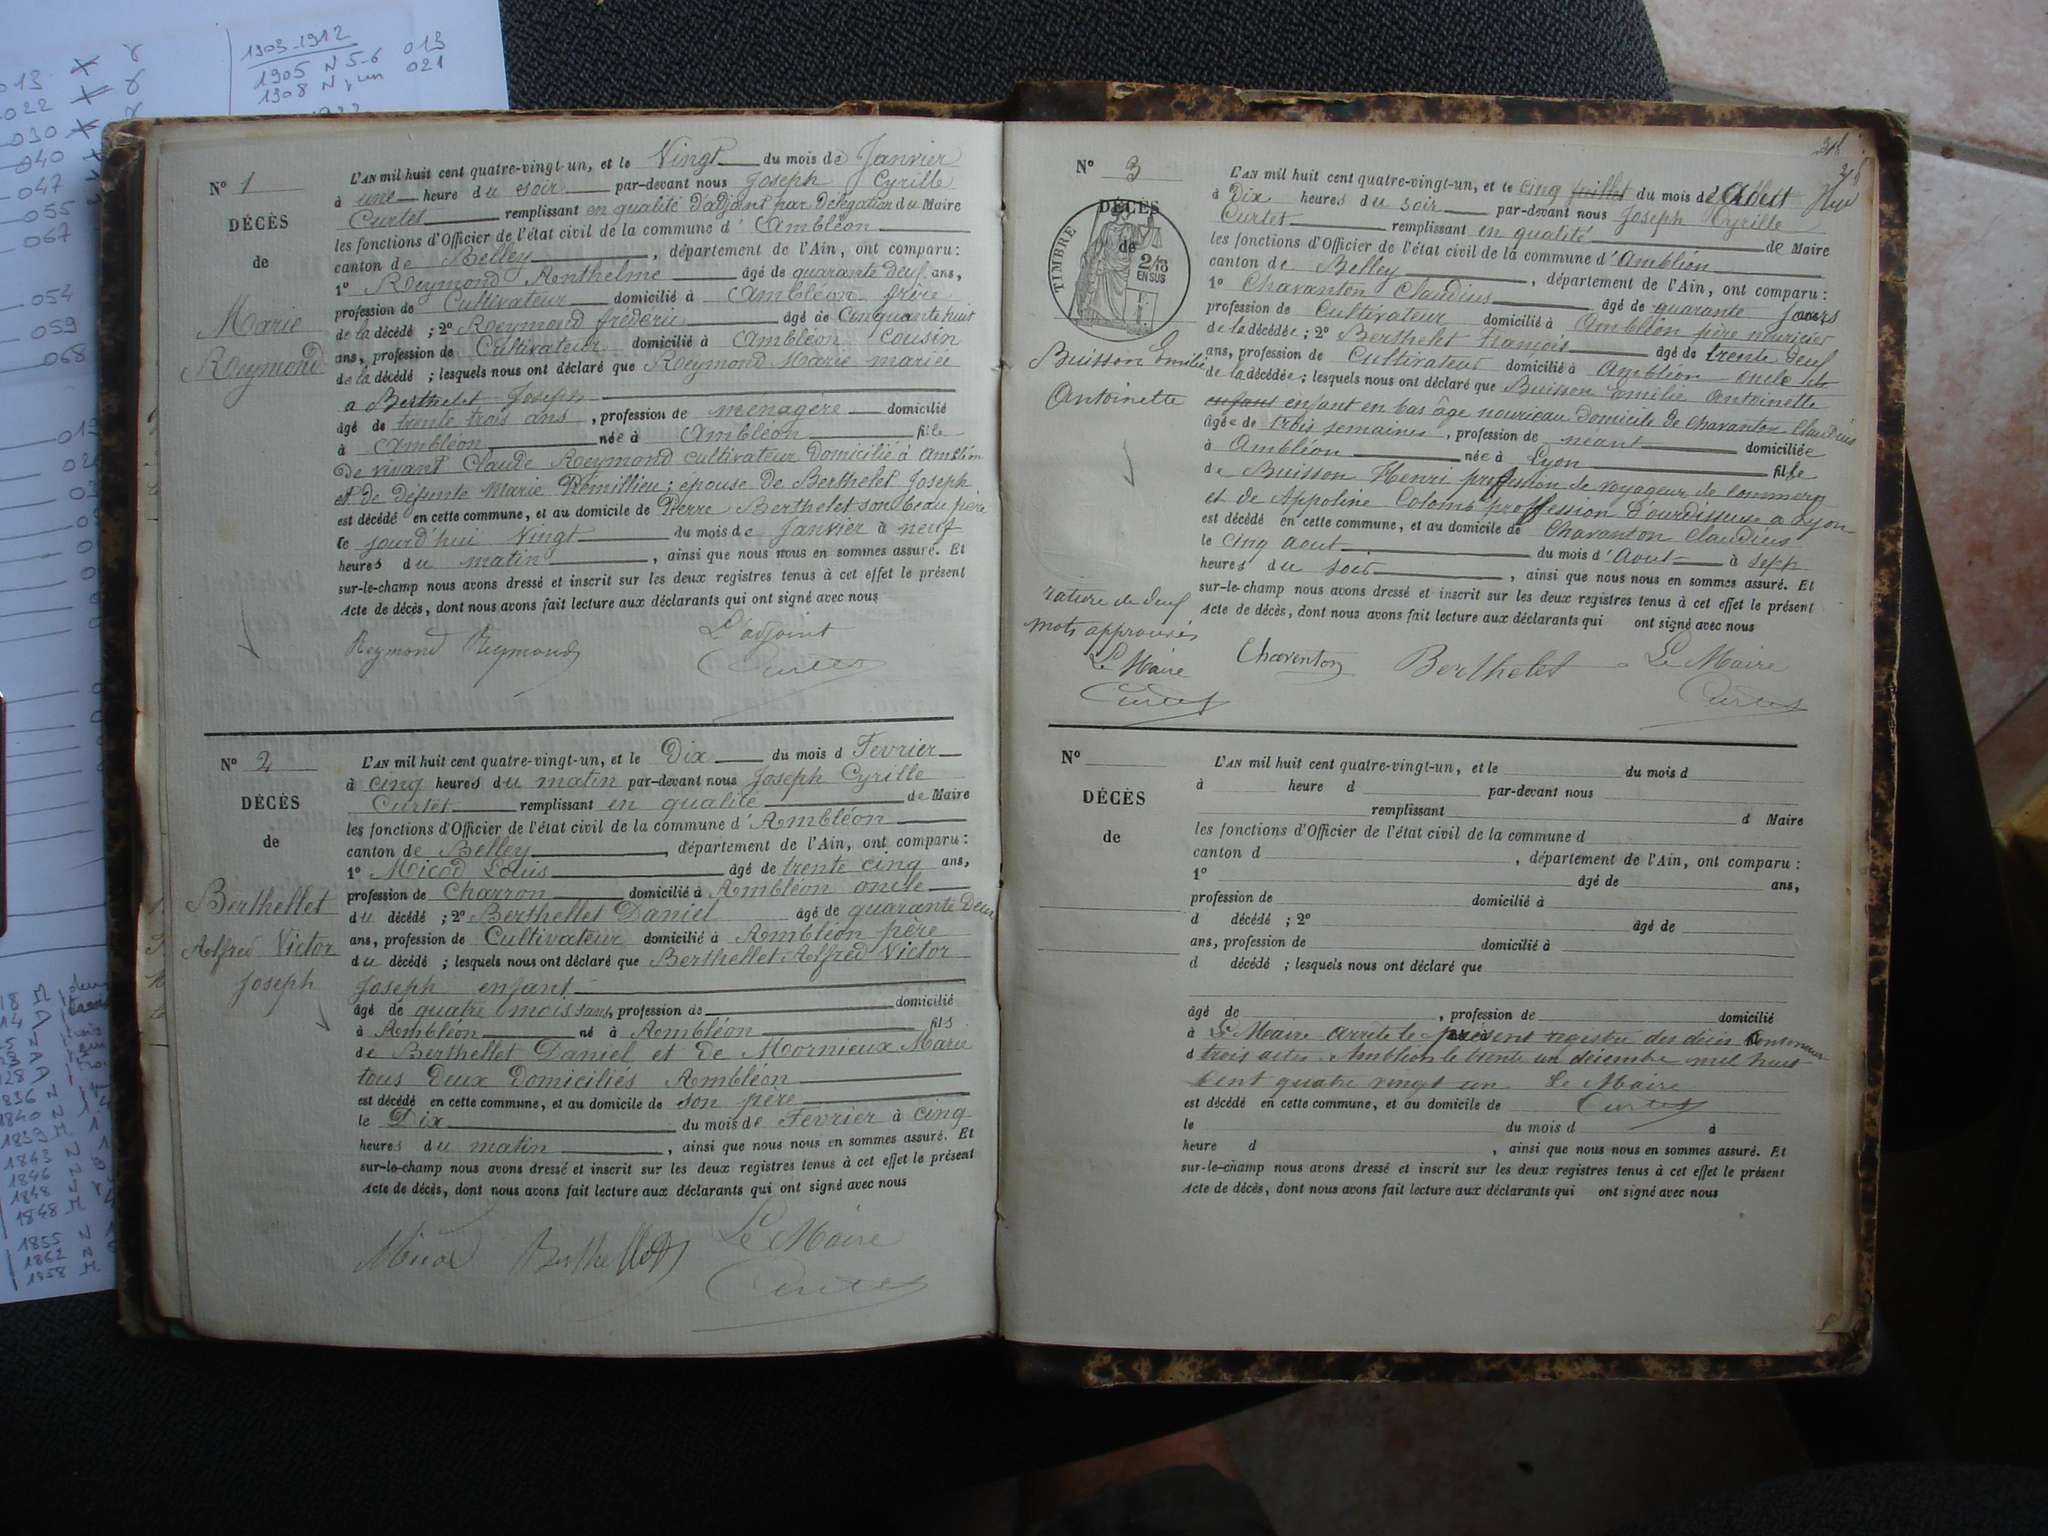 013 x 8
022 x 8
030 x 8
040
047
055
067
054
059
068
1903-1912
1905 N 5-6 013
1908 N 021
N° 1
DÉCÈS
de
Marie
Reymond
L'AN mil huit cent quatre-vingt-un, et le Vingt du mois de Janvier
à une heure du soir par-devant nous Joseph Cyrille
Curtet remplissant en qualité d'adjoint par délégation du Maire
les fonctions d'Officier de l'état civil de la commune d'Ambléon
canton de Belley, département de l'Ain, ont comparu :
1° Reymond Anthelme âgé de quarante deuf ans,
profession de Cultivateur domicilié à Ambléon frère
de la décédé ; 2° Reymond frédéric âgé de Cinquante huit
ans, profession de Cultivateur domicilié à Ambléon cousin
de la décédé ; lesquels nous ont déclaré que Reymond Marie mariée
a Berthelet Joseph
âgé de trente trois ans, profession de menagère domicilié
à Ambléon née à Ambléon fille
de vivant Claude Reymond cultivateur domicilié à Ambléon
et de défunte Marie Rémillieu ; épouse de Berthelet Joseph
est décédé en cette commune, et au domicile de Pierre Berthelet son beau père
le jourd'hui vingt du mois de Janvier à neuf
heures du matin, ainsi que nous nous en sommes assuré. Et
sur-le-champ nous avons dressé et inscrit sur les deux registres tenus à cet effet le présent
Acte de décès, dont nous avons fait lecture aux déclarants qui ont signé avec nous
Reymond Reymond L'adjoint
Curtet
N° 2
DÉCÈS
de
Berthellet
Alfred Victor
Joseph
L'AN mil huit cent quatre-vingt-un, et le Dix du mois d Fevrier
à cinq heures du matin par-devant nous Joseph Cyrille
Curtet remplissant en qualité de Maire
les fonctions d'Officier de l'état civil de la commune d'Ambléon
canton de Belley, département de l'Ain, ont comparu :
1° Micod Louis âgé de trente cinq ans,
profession de Charron domicilié à Ambléon oncle
du décédé ; 2° Berthellet Daniel âgé de quarante deux
ans, profession de Cultivateur domicilié à Ambléon père
du décédé ; lesquels nous ont déclaré que Berthellet Alfred Victor
Joseph enfant
âgé de quatre mois ans, profession de domicilié
à Ambléon né à Ambléon fils
de Berthellet Daniel et de Mornieux Marie
tous deux domiciliés Ambléon
est décédé en cette commune, et au domicile de son père
le Dix du mois de Fevrier à cinq
heures du matin, ainsi que nous nous en sommes assuré. Et
sur-le-champ nous avons dressé et inscrit sur les deux registres tenus à cet effet le présent
Acte de décès, dont nous avons fait lecture aux déclarants qui ont signé avec nous
Micod Berthellet Le Maire
Curtet
N° 3
DÉCÈS
de
TIMBRE
2/10
EN SUS
Buisson Emilie
Antoinette
L'AN mil huit cent quatre-vingt-un, et le cinq juillet du mois d'Aout
à Dix heures du soir par-devant nous Joseph Cyrille
Curtet remplissant en qualité de Maire
les fonctions d'Officier de l'état civil de la commune d'Ambléon
canton de Belley, département de l'Ain, ont comparu :
1° Charanton Claudius âgé de quarante jours
profession de Cultivateur domicilié à Ambléon père nouricier
de la décédée ; 2° Berthelet François âgé de trente deuf
ans, profession de Cultivateur domicilié à Ambléon oncle
de la décédée ; lesquels nous ont déclaré que Buisson Emilie Antoinette
enfant enfant en bas âge nouricau domicile de Charanton Claudius
âgée de trois semaines, profession de neant domiciliée
à Ambléon née à Lyon fille
de Buisson Henri profession de voyageur de commerce
et de Appoline Colomb profession d'ourdisseuse a Lyon
est décédé en cette commune, et au domicile de Charanton Claudius
le cinq aout du mois d'Aout à seph
heures du soir, ainsi que nous nous en sommes assuré. Et
sur-le-champ nous avons dressé et inscrit sur les deux registres tenus à cet effet le présent
Acte de décès, dont nous avons fait lecture aux déclarants qui ont signé avec nous
rature de deuf
mots approuvés
Le Maire
Curtet
Charenton Berthelet Le Maire
Curtet
N°
DÉCÈS
de
L'AN mil huit cent quatre-vingt-un, et le du mois d
à heure d par-devant nous
remplissant d Maire
les fonctions d'Officier de l'état civil de la commune d
canton d , département de l'Ain, ont comparu :
1° âgé de ans,
profession de domicilié à
d décédé ; 2° âgé de
ans, profession de domicilié à
d décédé ; lesquels nous ont déclaré que
âgé de , profession de domicilié
à Le Maire arrete le présent registre des décès Contenant
d trois actes Ambléon le trente un décembre mil huit
Cent quatre vingt un Le Maire
est décédé en cette commune, et au domicile de Curtet
le du mois d à
heure d , ainsi que nous nous en sommes assuré. Et
sur-le-champ nous avons dressé et inscrit sur les deux registres tenus à cet effet le présent
Acte de décès, dont nous avons fait lecture aux déclarants qui ont signé avec nous
1836 N
1840
1839 M
1843 N
1846 N
1848 N
1848 M
1855 N
1862 N
1858 M